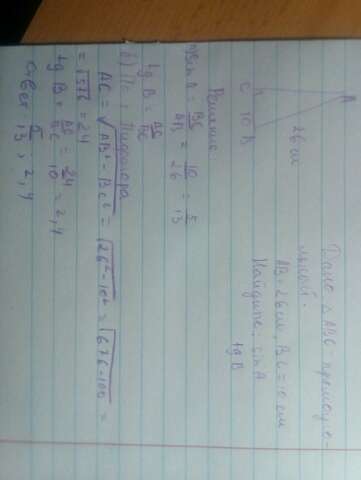 Дано △ ABC - прямоуго-
льный.
AB = 26 см, BC = 10 см
Найдите: sin A
tg B
A
26 см
C 10 B
Решение
а) sin A = BC/AB = 10/26 = 5/13
tg B = AC/BC
б) По т. Пифагора
AC = √AB² - BC² = √26² - 10² = √676 - 100 =
= √576 = 24
tg B = AC/BC = 24/10 = 2,4
Ответ 5/13 ; 2,4